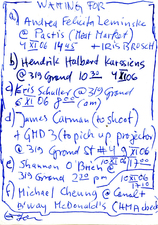 WAITING FOR
a) Andrea Felicita Leminske
@ Pactis (Meat Market)
4 XI 06 14 45 + IRIS BROSCH
b) Hendrik Halbard Karssiens
@ 319 Grand 10 30 4 XI 06
c) Kris Schaller @ 319 Grand
6 XI 06 8 00 (am)
d) James Carman (to shoot)
+ GMD 3 (to pick up projector)
@ 319 Grand St # 4 9 XI 06
e) Shannon O'Brien @ 10 XI 06 17 00
319 Grand 2 20 pm
f) Michael Cheung @ Canal +
B/way McDonald's